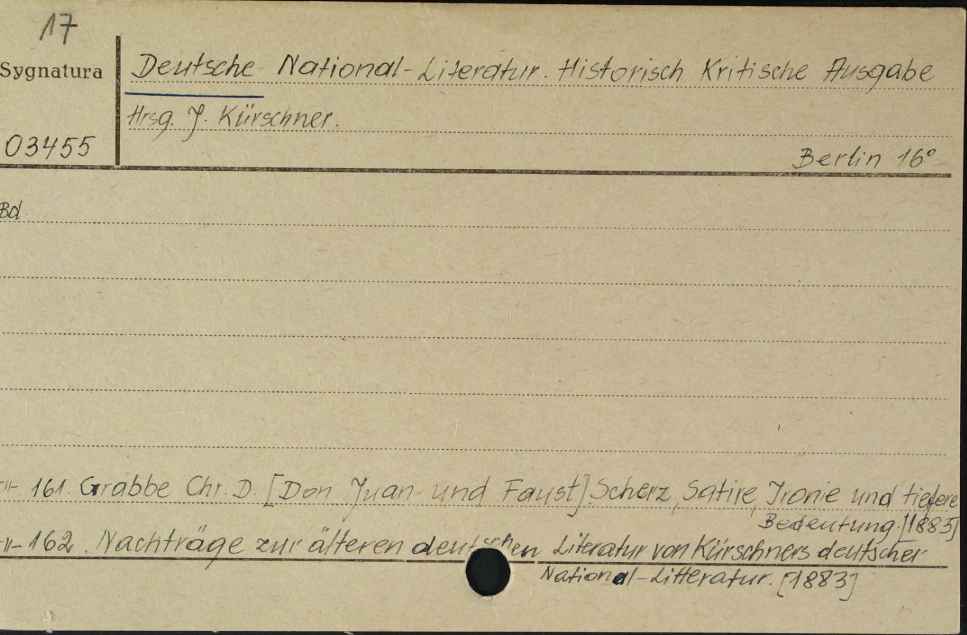 17
Sygnatura
Deutsche National-Literatur. Historisch Kritische Ausgabe
Hrsg. J. Kürschner.
03455
Berlin 16°
Bd
-"- 161. Grabbe Chr. D. [Don Juan und Faust]. Scherz, Satire, Ironie und tiefere
Bedeutung. [1885]
-"- 162. Nachträge zur älteren deutschen Literatur von Kürschners deutscher
National-Litteratur. [1883]